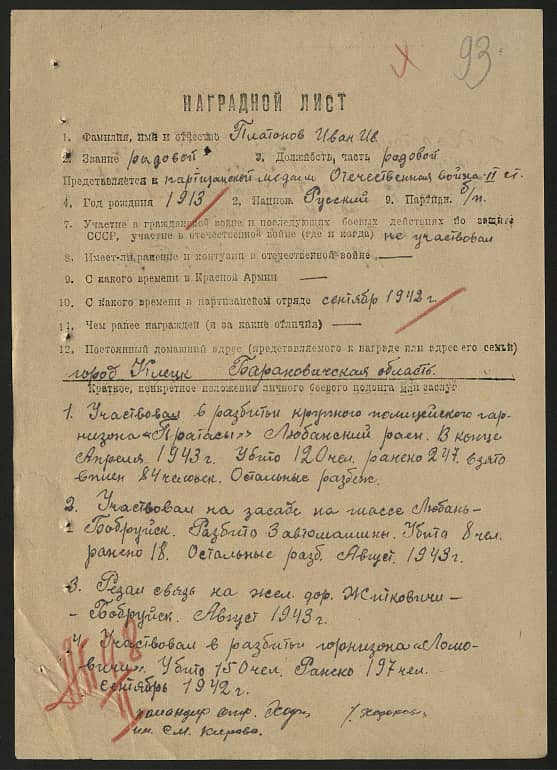 93
НАГРАДНОЙ ЛИСТ
1. Фамилия, имя и отчество Платонов Иван Ив.
2. Звание рядовой 3. Должность, часть рядовой
Представляется к партизанской медали Отечественная война II ст.
4. Год рождния 1913 2. Национ. Русский 9. Партийн. б/п.
7. Участие в гражданской войне и последующих боевых действиях по защите
СССР, участие в отечественной войне (где и когда) не участвовал
8. Имеет-ли ранение и контузии в отечественной войне —
9. С какого времени в Красной Армии —
10. С какого времени в партизанском отряде сентябр 1942 г.
11. Чем ранее награжден (и за какие отличия) —
12. Постоянный домашний адрес (представляемого к награде или адрес его семьи)
город Клецк Барановичская область.
Краткое, конкретное изложение личного боевого подвига или заслуг
1. Участвовал в разбитьи крупного полицейского гар-
низона «Пратасы» Любанский раен. В конце
Апреля 1943 г. Убито 120 чел. ранено 247. взято
в плен 84 человек. Остальные разбеж.
2. Участвовал на засаде на шоссе Любань-
- Бобруйск. Разбито 3 автомашины. Убита 8 чел.
ранено 18. Остальные разб. Август. 1943 г.
3. Резал связь на жел. дор. Житковичи -
- Бобруйск. Август 1943 г.
4. Участвовал в разбитьи горнизона «Ломо-
вичи». Убито 150 чел. Ранено 197 чел.
сентябрь 1942 г.
командир отр.
им. С.М. Кирова.